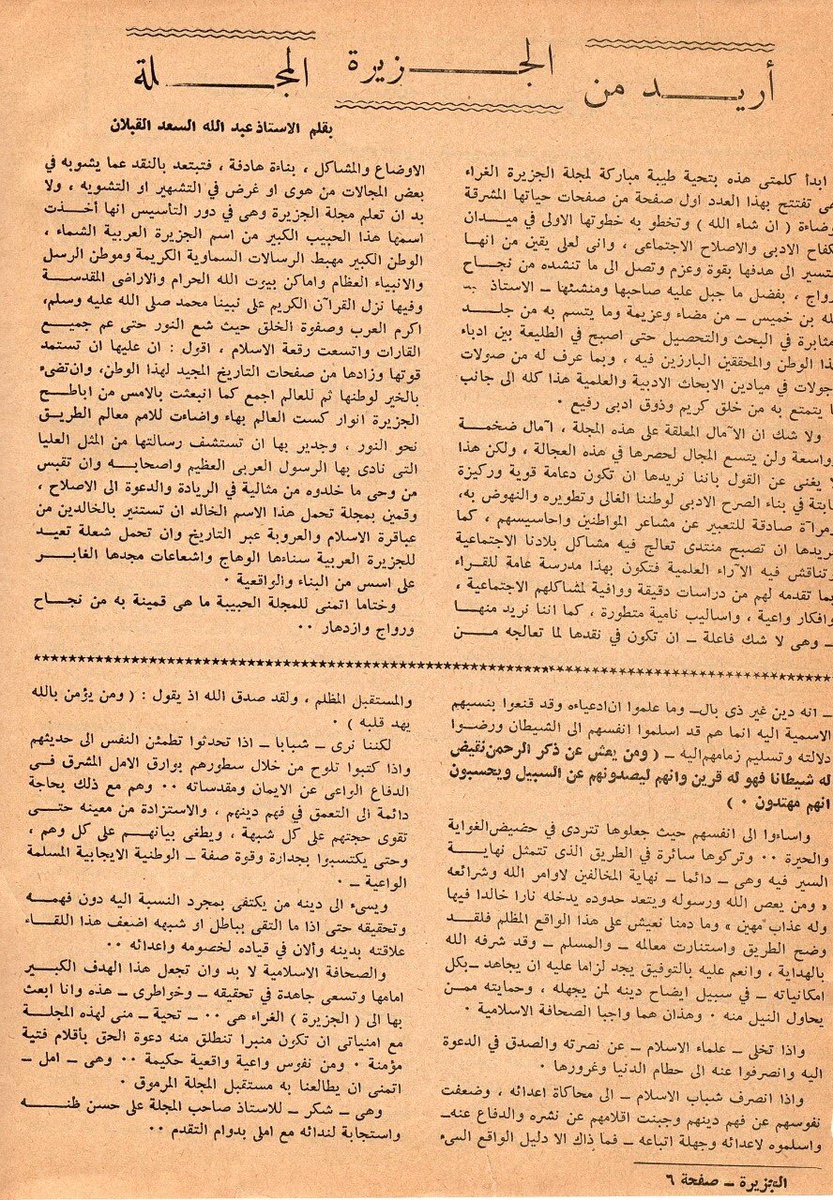 أريد من الجزيرة المجلة
بقلم الاستاذ عبد الله السعد القبلان
ابدأ كلمتى هذه بتحية طيبة مباركة لمجلة الجزيرة الغراء
تفتتح بهذا العدد اول صفحة من صفحات حياتها المشرقة
( ان شاء الله ) وتخطو به خطوتها الاولى في ميدان
الادبى والاصلاح الاجتماعى ، وانى لعلى يقين من انها
الى هدفها بقوة وعزم وتصل الى ما تنشده من نجاح
، بفضل ما جبل عليه صاحبها ومنشئها ــ الاستاذ
بن خميس ــ من مضاء وعزيمة وما يتسم به من جلد
في البحث والتحصيل حتى اصبح في الطليعة بين ادباء
الوطن والمحققين البارزين فيه ، وبما عرف له من صولات
في ميادين الابحاث الادبية والعلمية هذا كله الى جانب
يتمتع به من خلق كريم وذوق ادبى رفيع ٠
ولا شك ان الآمال المعلقة على هذه المجلة ، آمال ضخمة
ولن يتسع المجال لحصرها في هذه العجالة ، ولكن هذا
يغنى عن القول باننا نريدها ان تكون دعامة قوية وركيزة
في بناء الصرح الادبى لوطننا الغالى وتطويره والنهوض به،
صادقة للتعبير عن مشاعر المواطنين واحاسيسهم ، كما
ان تصبح منتدى تعالج فيه مشاكل بلادنا الاجتماعية
فيه الآراء العلمية فتكون بهذا مدرسة عامة للقراء
تقدمه لهم من دراسات دقيقة ووافية لمشاكلهم الاجتماعية ،
وافكار واعية ، واساليب نامية متطورة ، كما اننا نريد منها
ــ وهى لا شك فاعلة ــ ان تكون في نقدها لما تعالجه من
الاوضاع والمشاكل ، بناءة هادفة ، فتبتعد بالنقد عما يشوبه في
بعض المجالات من هوى او غرض في التشهير او التشويه ، ولا
بد ان تعلم مجلة الجزيرة وهى في دور التأسيس انها أخذت
اسمها هذا الحبيب الكبير من اسم الجزيرة العربية الشماء ،
الوطن الكبير مهبط الرسالات السماوية الكريمة وموطن الرسل
والانبياء العظام واماكن بيوت الله الحرام والاراضى المقدسة
وفيها نزل القرآن الكريم على نبينا محمد صلى الله عليه وسلم،
اكرم العرب وصفوة الخلق حيث شع النور حتى عم جميع
القارات واتسعت رقعة الاسلام ، اقول : ان عليها ان تستمد
قوتها وزادها من صفحات التاريخ المجيد لهذا الوطن، وان تضىء
بالخير لوطنها ثم للعالم اجمع كما انبعثت بالامس من اباطح
الجزيرة انوار كست العالم بهاء واضاءت للامم معالم الطريق
نحو النور ، وجدير بها ان تستشف رسالتها من المثل العليا
التى نادى بها الرسول العربى العظيم واصحابه وان تقبس
من وحى ما خلدوه من مثالية في الريادة والدعوة الى الاصلاح ،
وقمين بمجلة تحمل هذا الاسم الخالد ان تستنير بالخالدين من
عباقرة الاسلام والعروبة عبر التاريخ وان تحمل شعلة تعيد
للجزيرة العربية سناءها الوهاج واشعاعات مجدها الغابر
على اسس من البناء والواقعية ٠
وختاما اتمنى للمجلة الحبيبة ما هى قمينة به من نجاح
ورواج وازدهار ٠٠
ــ انه دين غير ذى بال ــ وما علموا ان ادعياءه وقد قنعوا بنسبهم
الاسمية اليه انما هم قد اسلموا انفسهم الى الشيطان ورضوا
دلالته وتسليم زمامهم اليه ــ ( ومن يعش عن ذكر الرحمن نقيض
له شيطانا فهو له قرين وانهم ليصدونهم عن السبيل ويحسبون
انهم مهتدون ٠ )
واساءوا الى انفسهم حيث جعلوها تتردى في حضيض الغواية
والحيرة ٠٠ وتركوها سائرة في الطريق الذى تتمثل نهاية
السير فيه وهى ــ دائما ــ نهاية المخالفين لاوامر الله وشرائعه
، ومن يعص الله ورسوله ويتعد حدوده يدخله نارا خالدا فيها
وله عذاب مهين ، وما دمنا نعيش على هذا الواقع المظلم فلقد
وضح الطريق واستنارت معالمه ــ والمسلم ــ وقد شرفه الله
بالهداية ، وانعم عليه بالتوفيق يجد لزاما عليه ان يجاهد ــ بكل
امكانياته ــ في سبيل ايضاح دينه لمن يجهله ، وحمايته ممن
يحاول النيل منه ٠ وهذان هما واجبا الصحافة الاسلامية ٠
واذا تخلى ــ علماء الاسلام ــ عن نصرته والصدق في الدعوة
اليه وانصرفوا عنه الى حطام الدنيا وغرورها ٠
واذا انصرف شباب الاسلام ــ الى محاكاة اعدائه ، وضعفت
نفوسهم عن فهم دينهم وجبنت اقلامهم عن نشره والدفاع عنه ــ
واسلموه لاعدائه وجهلة اتباعه ــ فما ذاك الا دليل الواقع السىء
والمستقبل المظلم ، ولقد صدق الله اذ يقول : ( ومن يؤمن بالله
يهد قلبه ) ٠
لكننا نرى ــ شبابا ــ اذا تحدثوا تطمئن النفس الى حديثهم
واذا كتبوا تلوح من خلال سطورهم بوارق الامل المشرق في
الدفاع الواعى عن الايمان ومقدساته ٠٠ وهم مع ذلك بحاجة
دائمة الى التعمق في فهم دينهم ، والاستزادة من معينه حتى
تقوى حجتهم على كل شبهة ، ويطغى بيانهم على كل وهم ،
وحتى يكتسبوا بجدارة وقوة صفة ــ الوطنية الايجابية المسلمة
الواعية ــ ٠
ويسىء الى دينه من يكتفى بمجرد النسبة اليه دون فهمه
وتحقيقه حتى اذا ما التقى بباطل او شبهه اضعف هذا اللقاء
علاقته بدينه وألان في قياده لخصومه واعدائه ٠٠
والصحافة الاسلامية لا بد وان تجعل هذا الهدف الكبير
امامها وتسعى جاهدة في تحقيقه ــ وخواطرى ــ هذه وانا ابعث
بها الى ( الجزيرة ) الغراء هى ٠٠ ــ تحية ــ منى لهذه المجلة
مع امنياتى ان تكون منبرا تنطلق منه دعوة الحق بأقلام فتية
مؤمنة ٠ ومن نفوس واعية واقعية حكيمة ٠٠ وهى ــ امل ــ
اتمنى ان يطالعنا به مستقبل المجلة المرموق ٠
وهى ــ شكر ــ للاستاذ صاحب المجلة على حسن ظنه
واستجابة لندائه مع املى بدوام التقدم ٠٠
الجزيرة ــ صفحة ٦